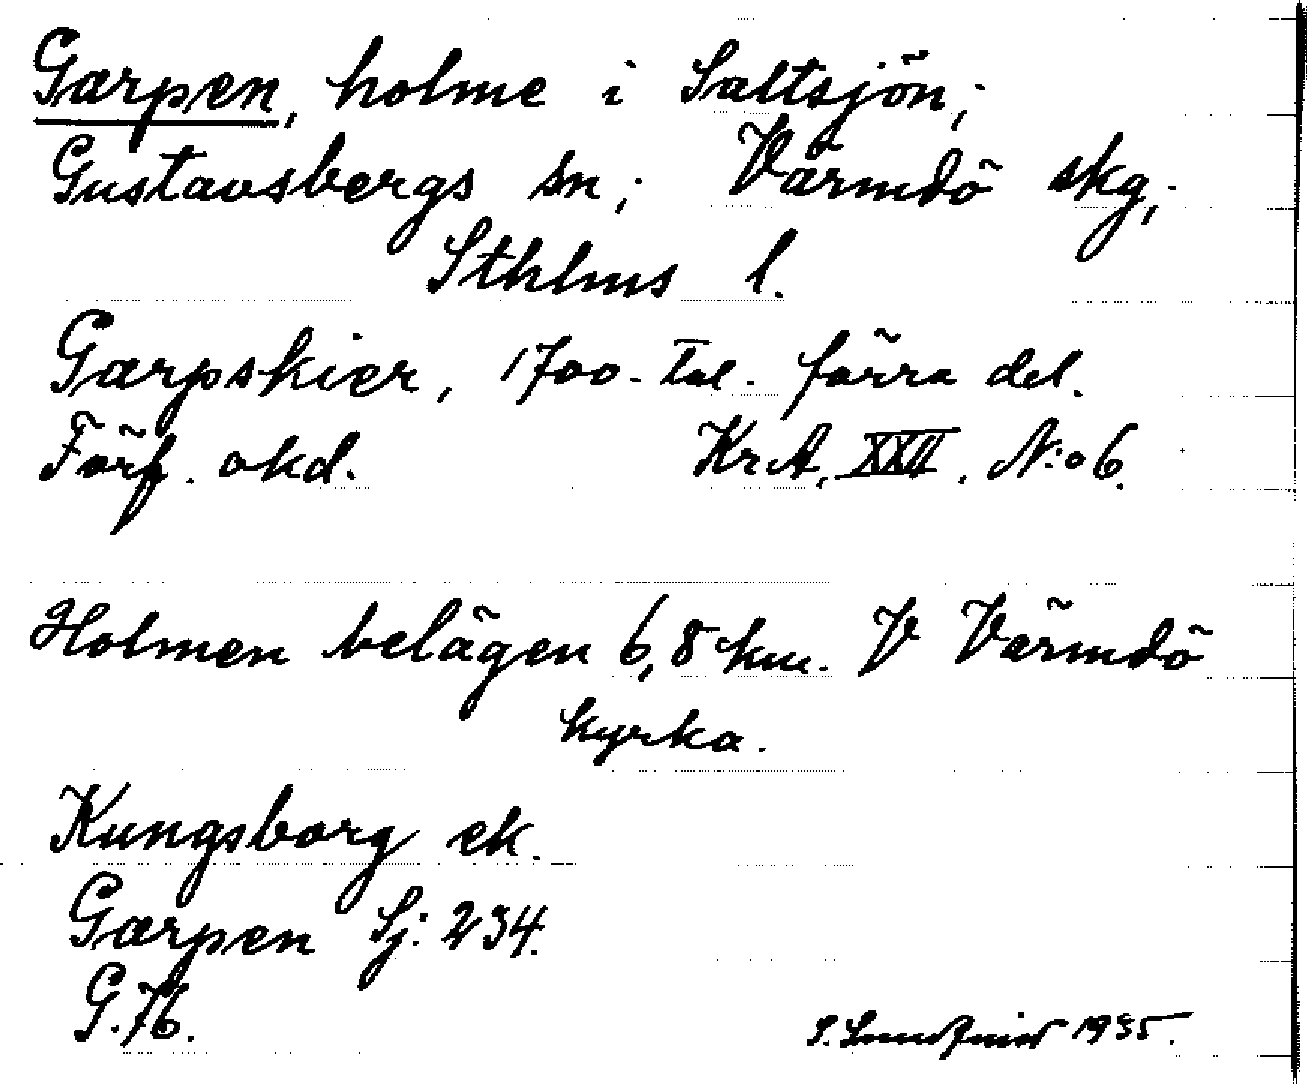 Garpen, holme i Saltsjön;
Gustavsbergs sn; Värmdö skg;
Sthlms l.
Garpskier, 1700-tal. förra del.
Förf. okd. KrA, XXII, N:o 6.
Holmen belägen 6,8 km. V Värmdö
kyrka.
Kungsborg ek.
Garpen Sj: 234.
G. 76.
S. 1935.